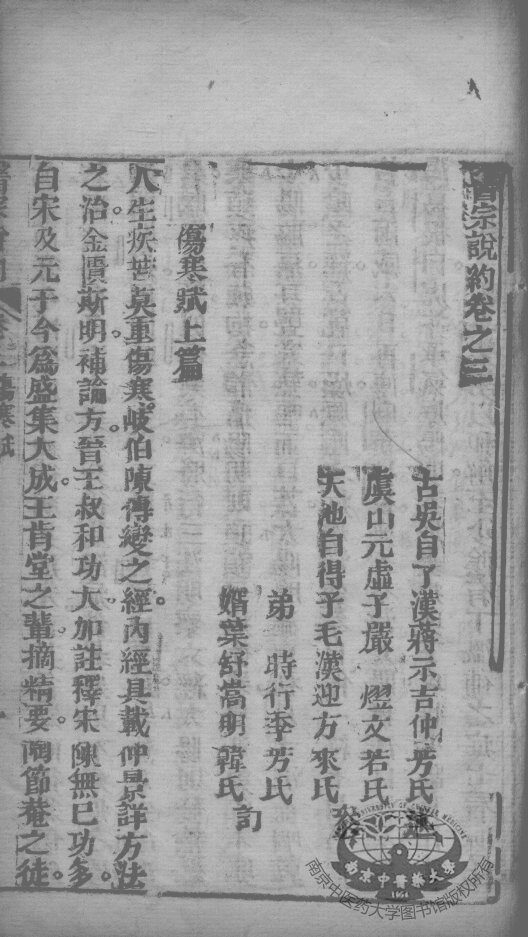 醫宗說約卷之三
古吳自了漢蔣示吉仲芳氏
虞山元虛子嚴 熠文若氏
天池自得子毛漢迎方來氏
弟 時行季芳氏
婿葉舒嵩明韓氏
訂
傷寒賦上篇
人生疾苦莫重傷寒岐伯陳傳變之經內經具載仲景詳方法
之治金匱斯明補論方晉王叔和功大加註釋宋陳無已功多
自宋及元于今為盛集大成王肯堂之輩摘精要陶節菴之徒
南京中医药大学图书馆版权所有